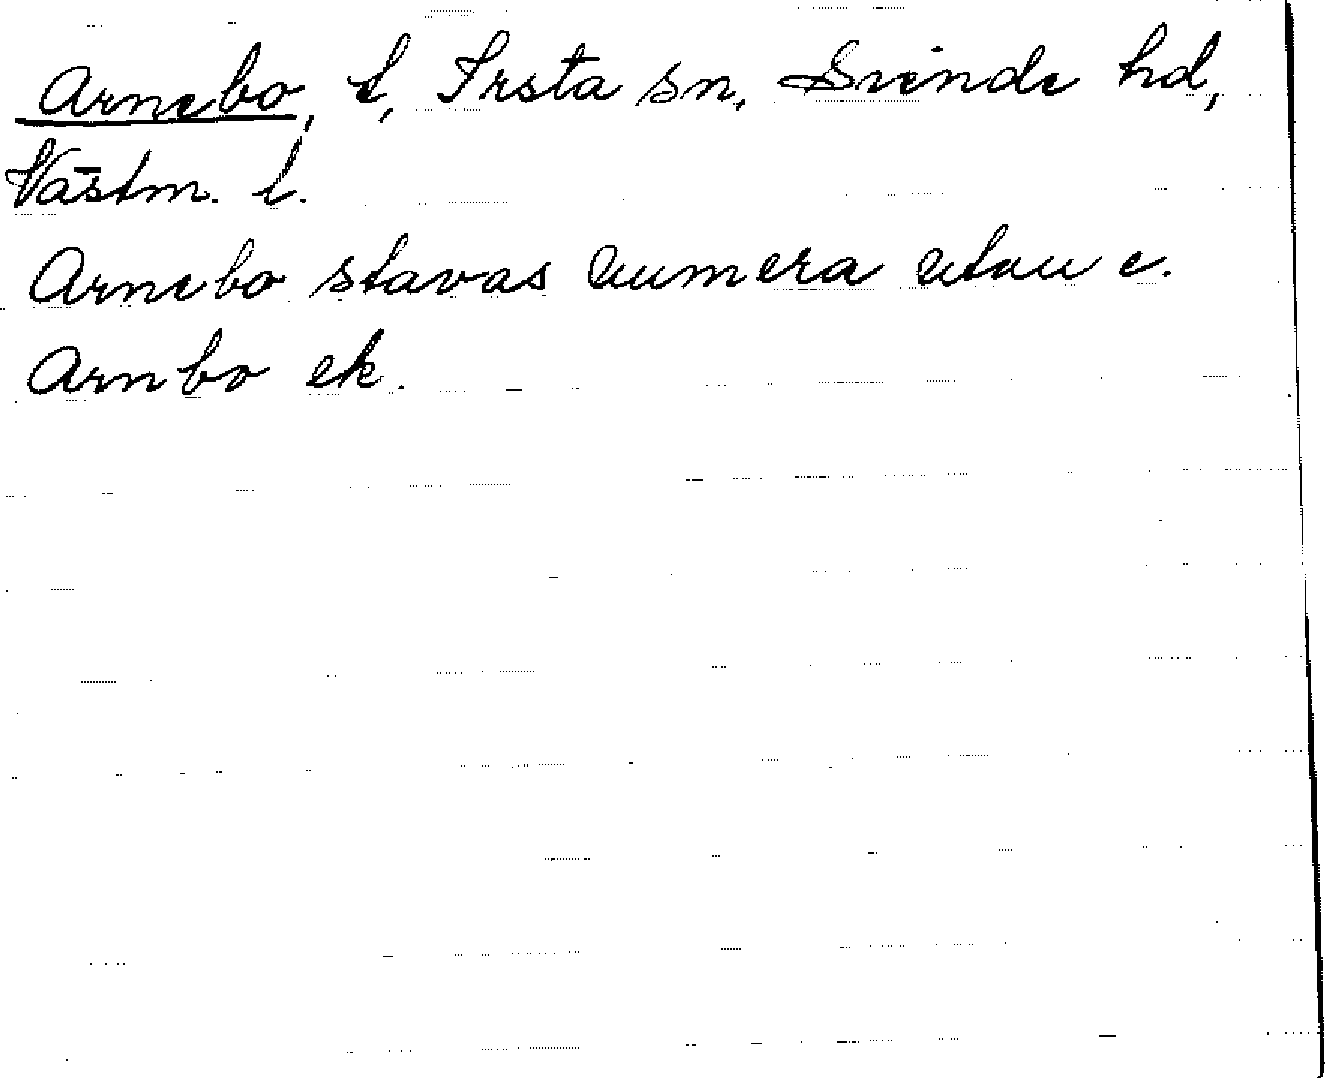 Arnebo, t, Irsta sn, Siende hd,
Västm. l.
Arnebo stavas numera utan e.
Arnbo ek.